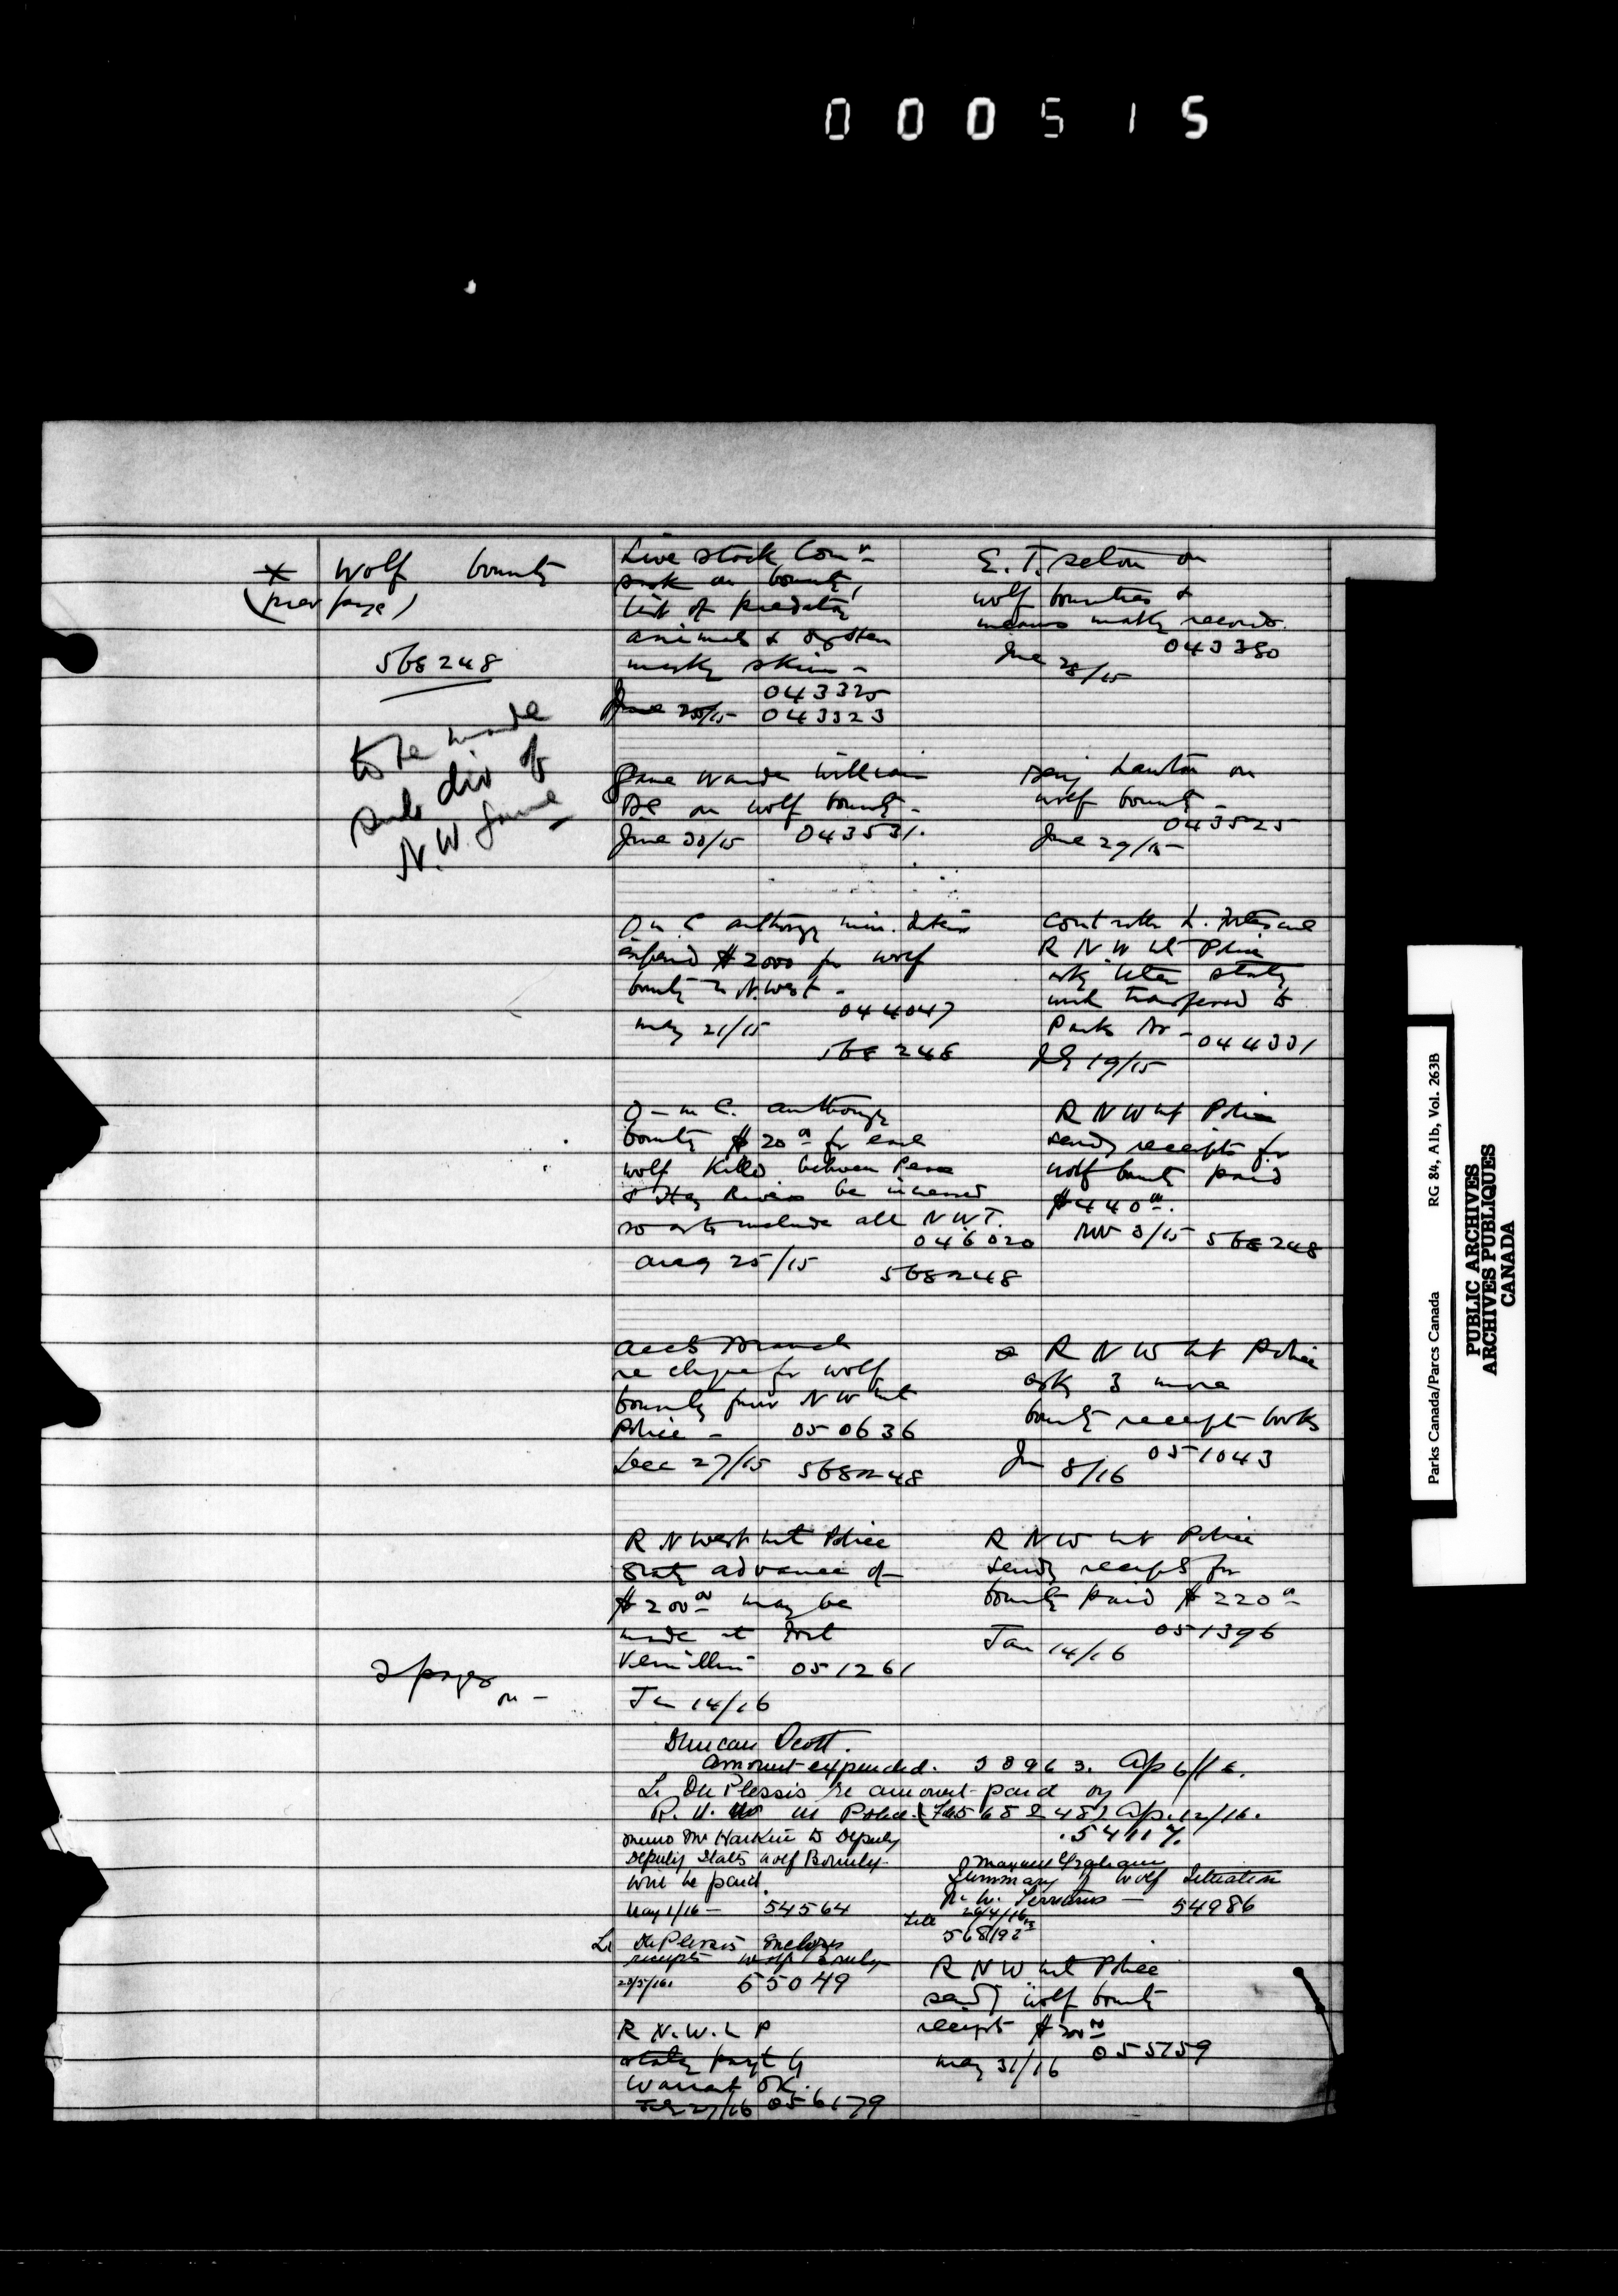 000515
* Wolf bounty
(prev page)
568248
to be made
sub div of
N.W. Game
Live stock Comr
on bounty,
list of predatory
animals & system
marky skins -
043325
June 25/15 043323
E. T. Seton on
wolf bounties &
means matky records.
043380
June 28/15
Game Warden William
BC on wolf bounty -
June 30/15 043531.
Benj Lawton on
wolf bounty -
043525
June 29/15
O in C authorizg min. Interior
expend $2000 for wolf
bounty in N. West -
044047
May 21/15
568248
Controller L. Fortescue
R N W Mt Police
asky letter statg
work transferred to
Parks Br - 044331
July 19/15
O - in C. authorizg
bounty $20 00 for each
wolf killed between Peace
& Hay Rivers be increased
so as to include all N.W.T.
046020
Aug 25/15
568248
R N W Mt Police
sends receipts for
wolf bounty paid
$440 00.
Nov 3/15 568248
Accts Branch
re cheque for wolf
bounty from N W Mt
Police - 050636
Dec 27/15 568248
R N W Mt Police
ask 3 more
bounty receipt books
051043
Jan 8/16
R N West Mt Police
state advance of
$200 00 may be
made at Fort
Vermillion 051261
Jan 14/16
R N W Mt Police
sends receipts for
bounty paid $220 00
051396
Jan 14/16
2 pages
on -
Duncan Scott.
Amount expended. 53963. Ap 6/16.
L. DuPlessis re amount paid by
R. N. W M Police. (568248) Ap. 12/16.
.54117.
Memo Mr Harkin to Deputy
Deputy States Wolf Bounty
will be paid.
May 1/16 - 54564
J Maxwell Graham
Summary of Wolf Situation
N. W. Territories - 54986
26/4/16
568192
L DuPlessis Encloses
receipts wolf Bounty
23/5/16. 55049
R N W Mt Police
sendg wolf bounty
receipts $200 00
055759
May 31/16
R N. W. L P
statg paymt by
Warrant OK.
27/16 056179
Parks Canada/Parcs Canada RG 84, A1b, Vol. 263B
PUBLIC ARCHIVES
ARCHIVES PUBLIQUES
CANADA